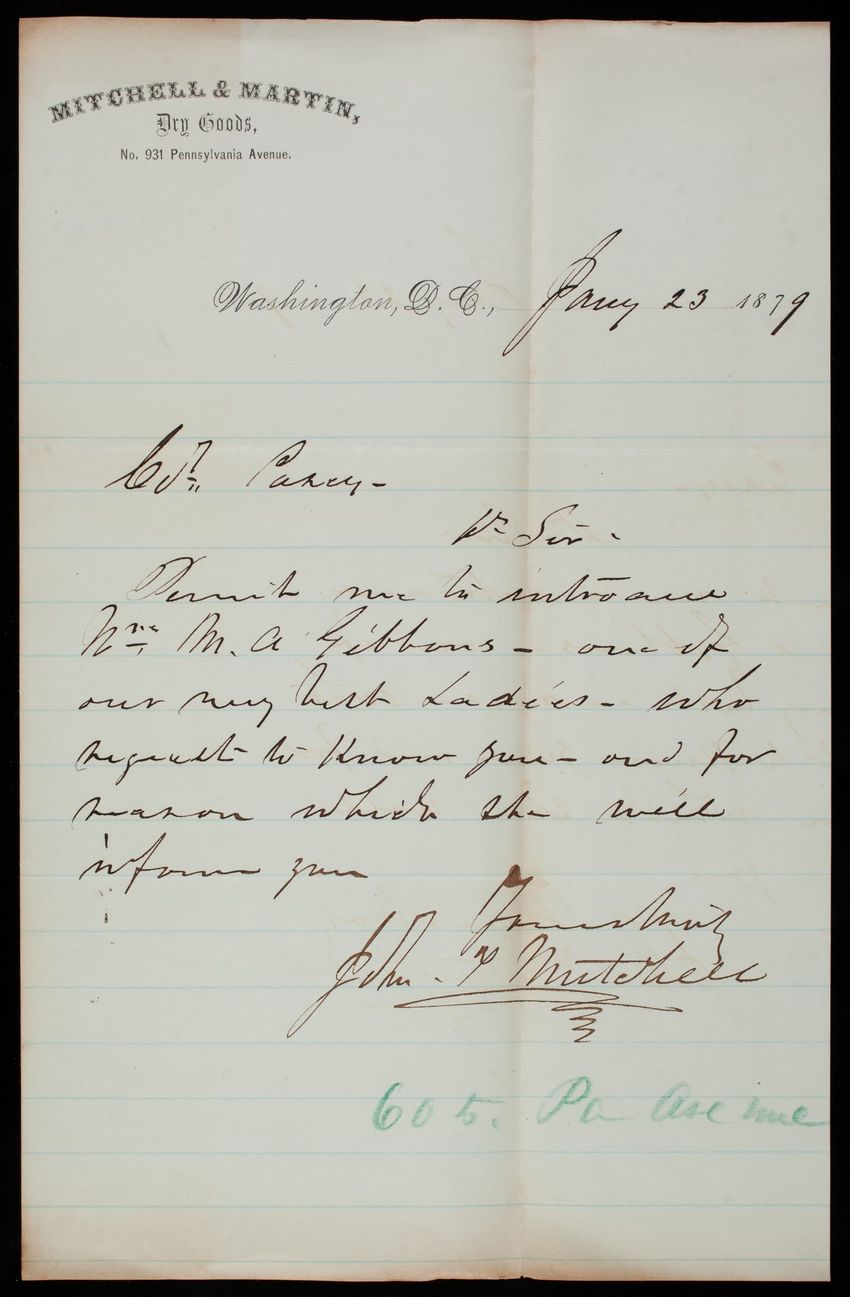 MITCHELL & MARTIN,
Dry Goods,
No. 931 Pennsylvania Avenue.
Washington, D. C., Jany 23 1879
Col. Casey -
Dr Sir -
Permit me to introduce
Mrs. M. A Gibbons - one of
our very best Ladies - who
request to Know you - and for
reason which she will
inform you
Yours truly
John T Mitchell
605. Pa Avenue